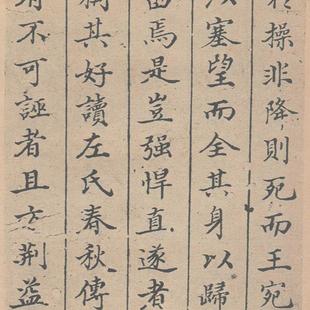 操非降則死而王宛
以塞望而全其身以歸
焉是豈强悍直遂者
稱其好讀左氏春秋傳
不可誣者且亦荆益